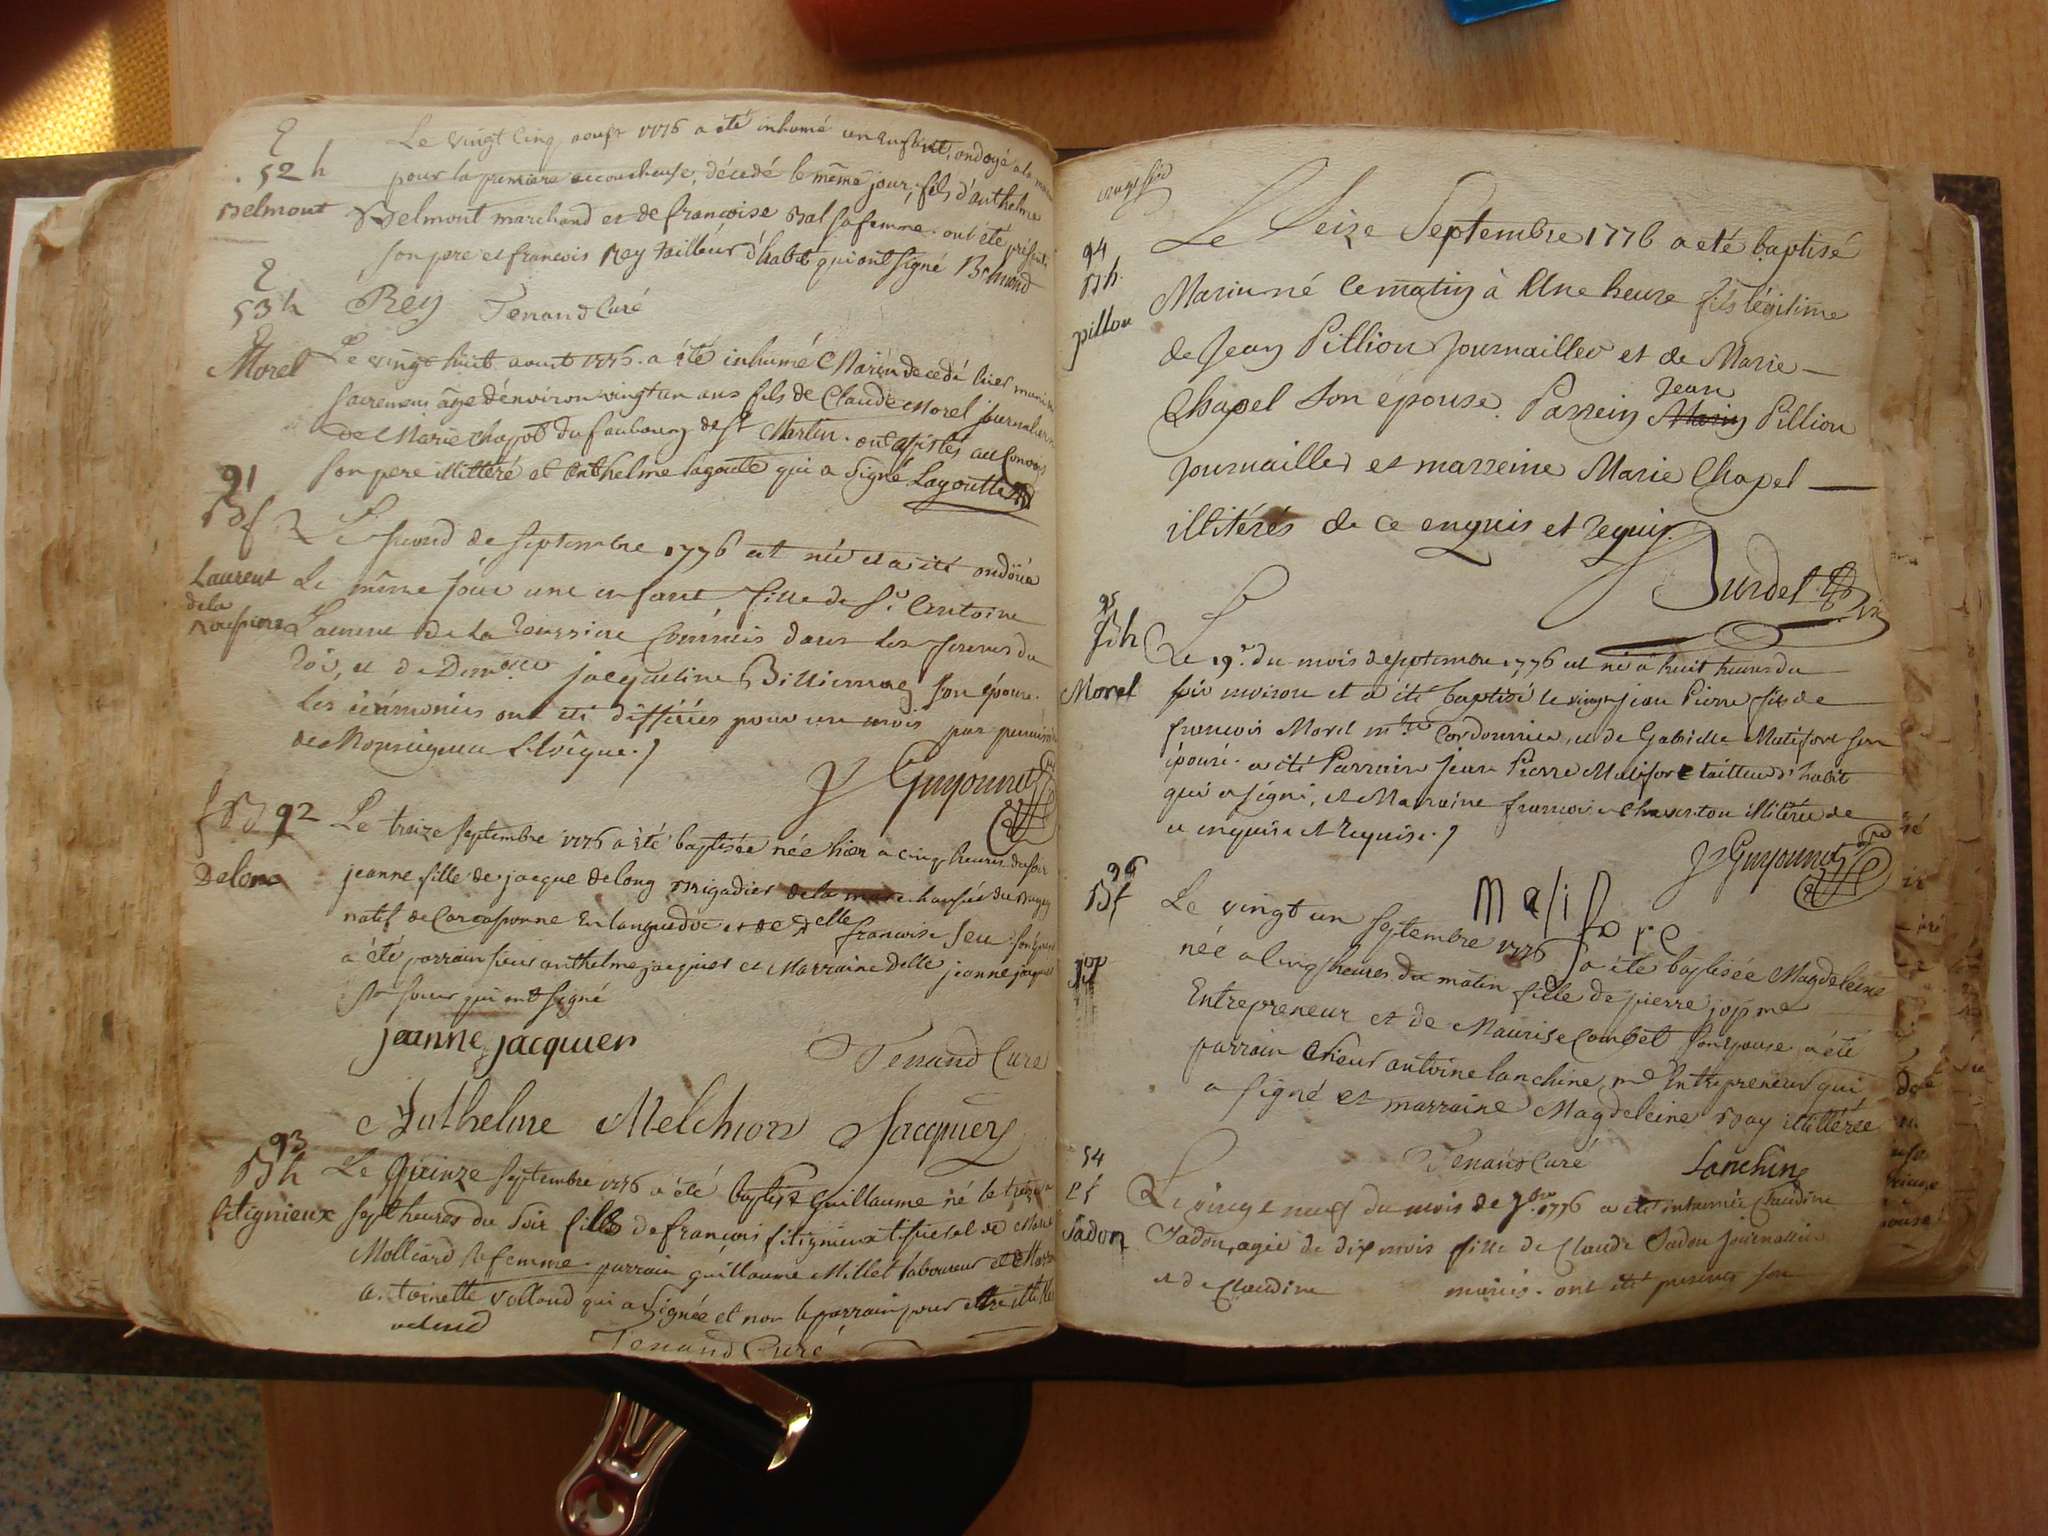 52 h
Belmont
Le vingt cinq aoust 1776 a été inhumé un enfant, ondoyé a la
pour la premiere accoucheuse, décédé le même jour, fils d'anthelme
Belmont marchand et de francoise Bal sa femme. ont été présents
son pere et francois Rey tailleur d'habit qui ont signé Belmond
Rey Tenand Curé
53 h
Morel
Le vingt huit aoust 1776 a été inhumé Marin decedé hier muni
sacremens âgé d'environ vingt un ans fils de Claude Morel journalier
de Marie chapot du faubourg de St Martin. ont assistés au convoi
son pere illitéré et Anthelme lagoute qui a signé Lagoutte
91
Bf
Laurent
de la
Roussiere
Le second de septembre 1776 est née et a été ondoïée
le même jour une enfant fille de Sr. Antoine
Laurent de la Roussiere Commis dans les fermes du
Roi, et de Demlle jacqueline Billiemaz son épouse.
les cérémonies ont été différées pour un mois par permission
de Monseigneur L'Evêque./
J Guyonnet
f B 92
Delong
Le treize septembre 1776 a été baptisée née hier a cinq heures du soir
jeanne fille de jacque delong Brigadier de la marechaussée du Bugey
natif de Carcassonne En languedoc et de Delle francoise Seu son épouse
a été parrain sieur anthelme jacquier et Marraine Delle jeanne jacquier
sa soeur qui ont signé
jeanne jacquier
Tenand Curé
Anthelme Melchior Jacquier
93
Bh
fitignieux
Le Quinze septembre 1776 a été baptisé guillaume né le treize a
sept heures du soir fils de francois fitignieux et de Marie
Molliard sa femme. parrain guillaume Millet laboureur et Marraine
Antoinette volland qui a signée et non le parrain pour être illitéré
volland
Tenand Curé
94
Bh.
pillon
Le Seize Septembre 1776 a eté baptisé
Marin né ce matin à Une heure fils légitime
de Jean Pillion Journaillier et de Marie
Chapel Son épouse. Parrein Jean Pillion
Journaillier et marreine Marie Chapel
illitérés de ce enquis et requis.
Burdel vic
95
Bh
Morel
Le 19e. du mois de septembre 1776 est né à huit heures du
soir environ et a été baptisé le vingt jean Pierre fils de
francois Morel mtre Cordonnier, et de Gabrielle Matifort son
épouse. a été Parrain jean Pierre Matifort tailleur d'habit
qui a signé, et Marraine francoise Chaventon illitérée de
ce enquise et requise./
J Guyonnet
matifore
96
Bf
jop
Le vingt un septembre 1776 a été baptisée Magdeleine
née a cinq heures du matin fille de pierre jop me
Entrepreneur et de Maurise Combet son épouse a été
parrain sieur antoine lanchine, me Entrepreneur qui
a signé et marraine Magdeleine Bay illitérée
Tenand Curé Lanchine
54
Ef
Jadon
Le vingt neuf du mois de 7bre 1776 a été inhumée Claudine
Jadon, agée de dix mois fille de Claude Jadon journallier
et de Claudine mariés. ont été présens son